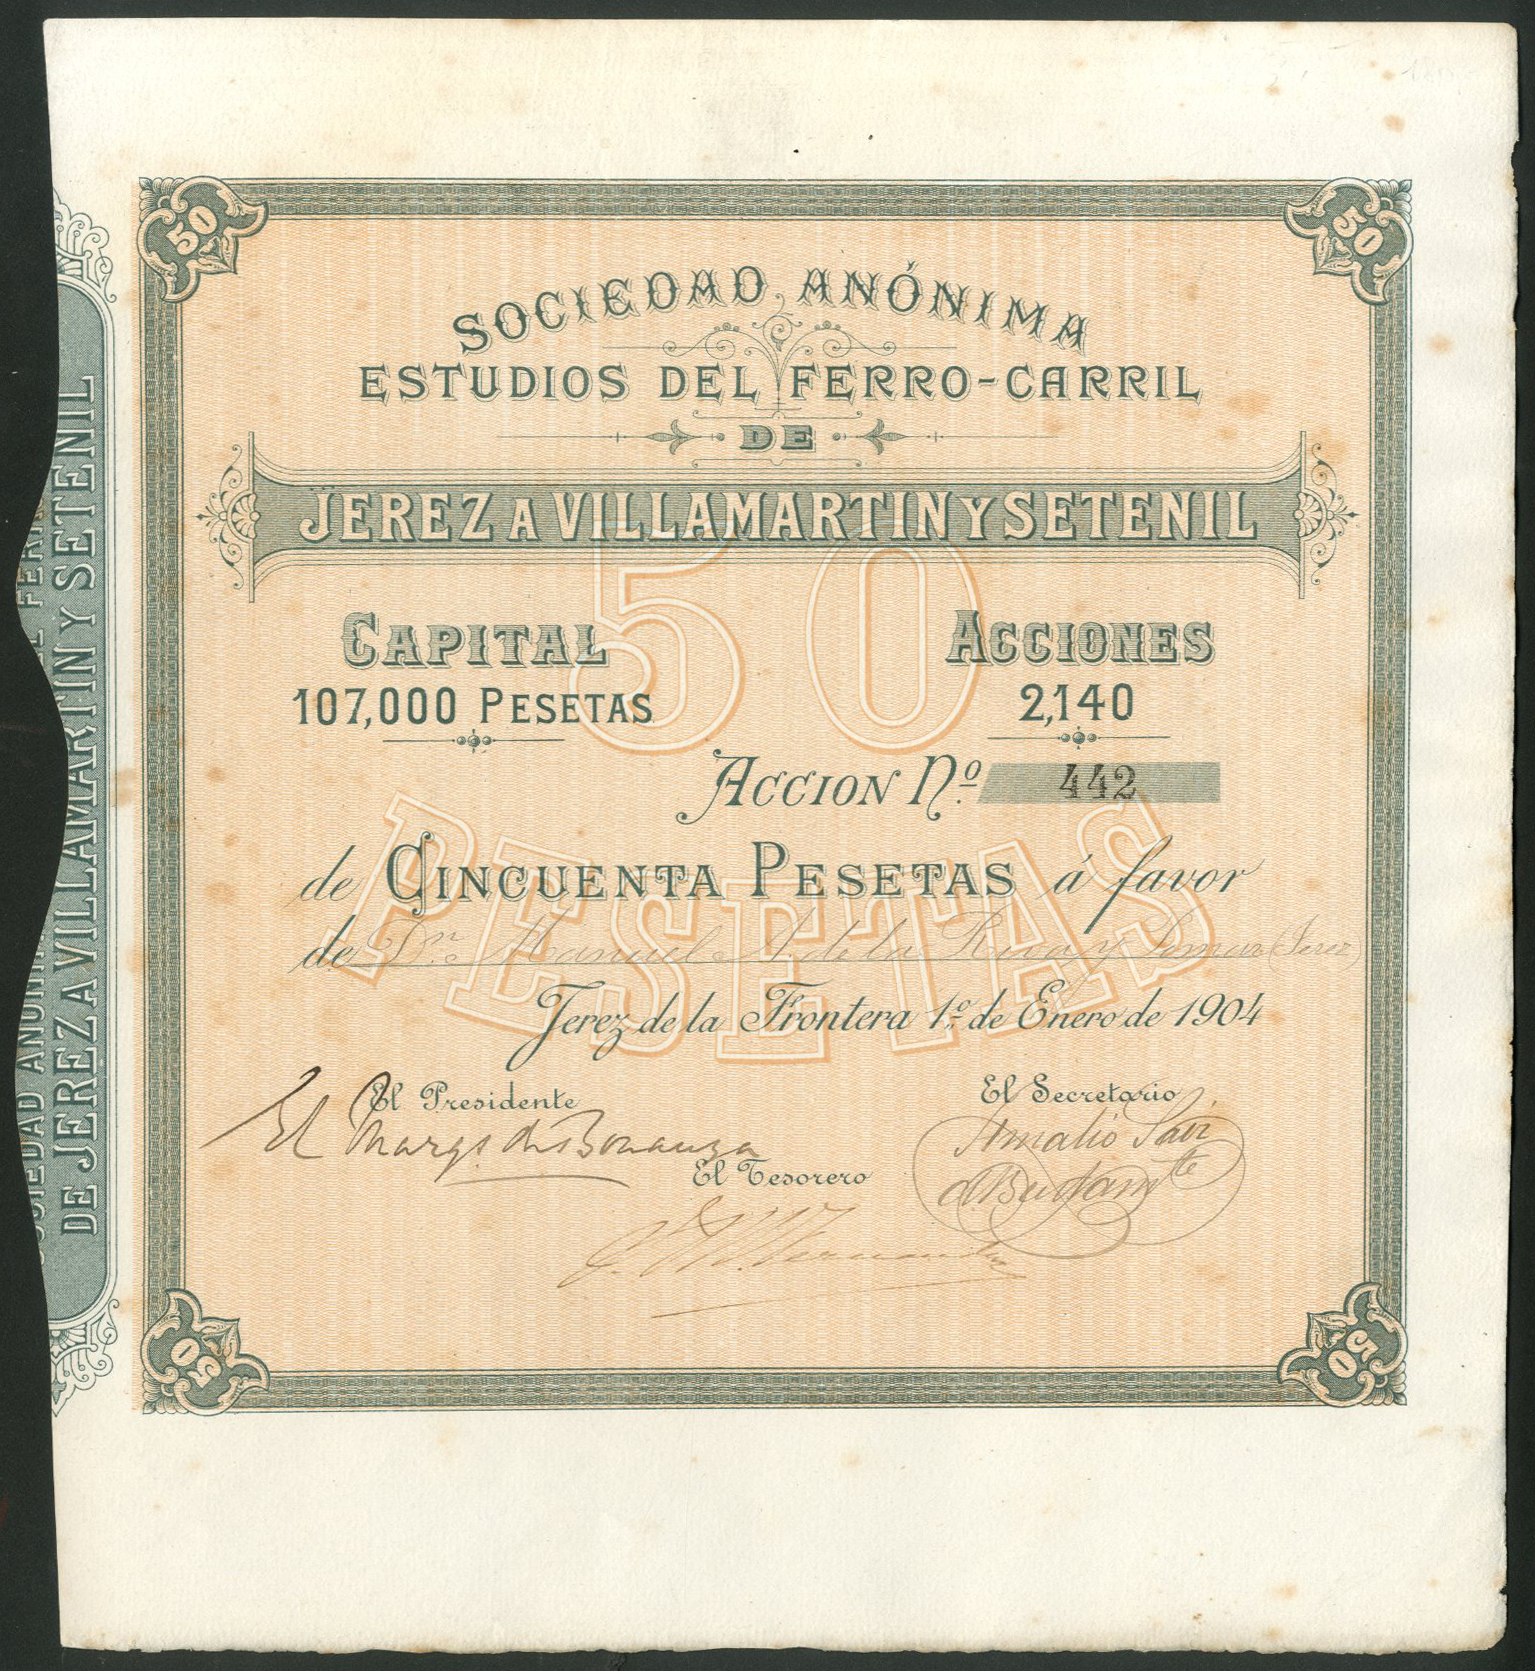 50
50
SOCIEDAD ANÓNIMA
ESTUDIOS DEL FERRO-CARRIL
DE
JEREZ A VILLAMARTIN Y SETENIL
50
CAPITAL ACCIONES
107,000 PESETAS 2,140
ACCION Nº 442
PESETAS
de CINCUENTA PESETAS á favor
de Dn. Manuel A. de la Riva y (Jerez)
Jerez de la Frontera 1º de Enero de 1904
El Presidente El Secretario
El Marqs de Bonanza Amalio Saiz
de Bustamte
El Tesorero
50
50
SOCIEDAD ANÓNIMA
DE JEREZ A VILLAMARTIN Y SETENIL